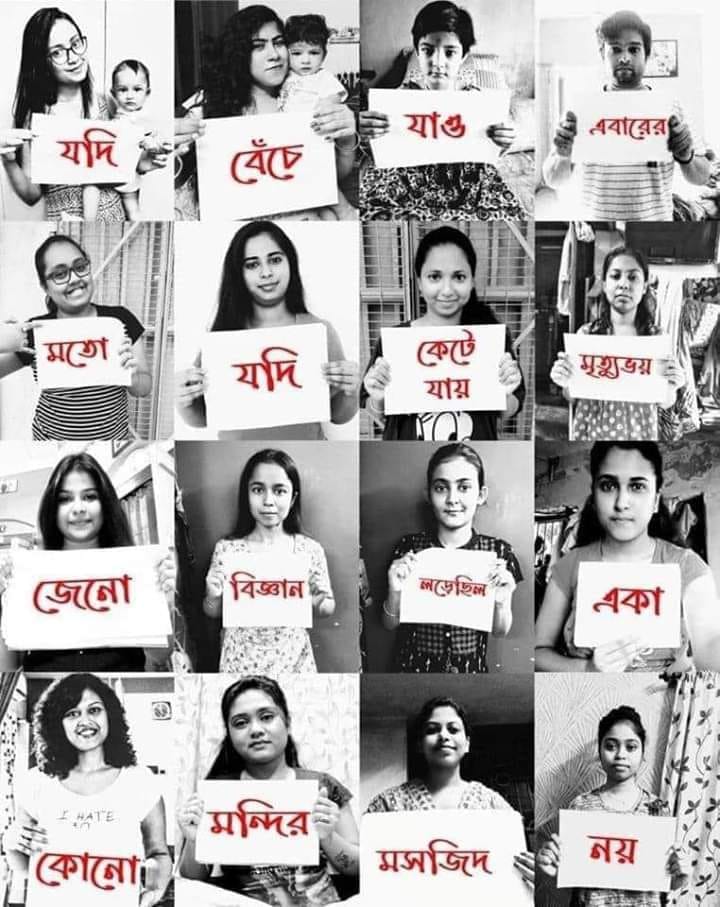 যদি
বেঁচে
যাও
এবারের
মতো
যদি
কেটে
যায়
মৃত্যুভয়
জেনো
বিজ্ঞান
লড়েছিল
একা
I HATE
কোনো
মন্দির
মসজিদ
নয়